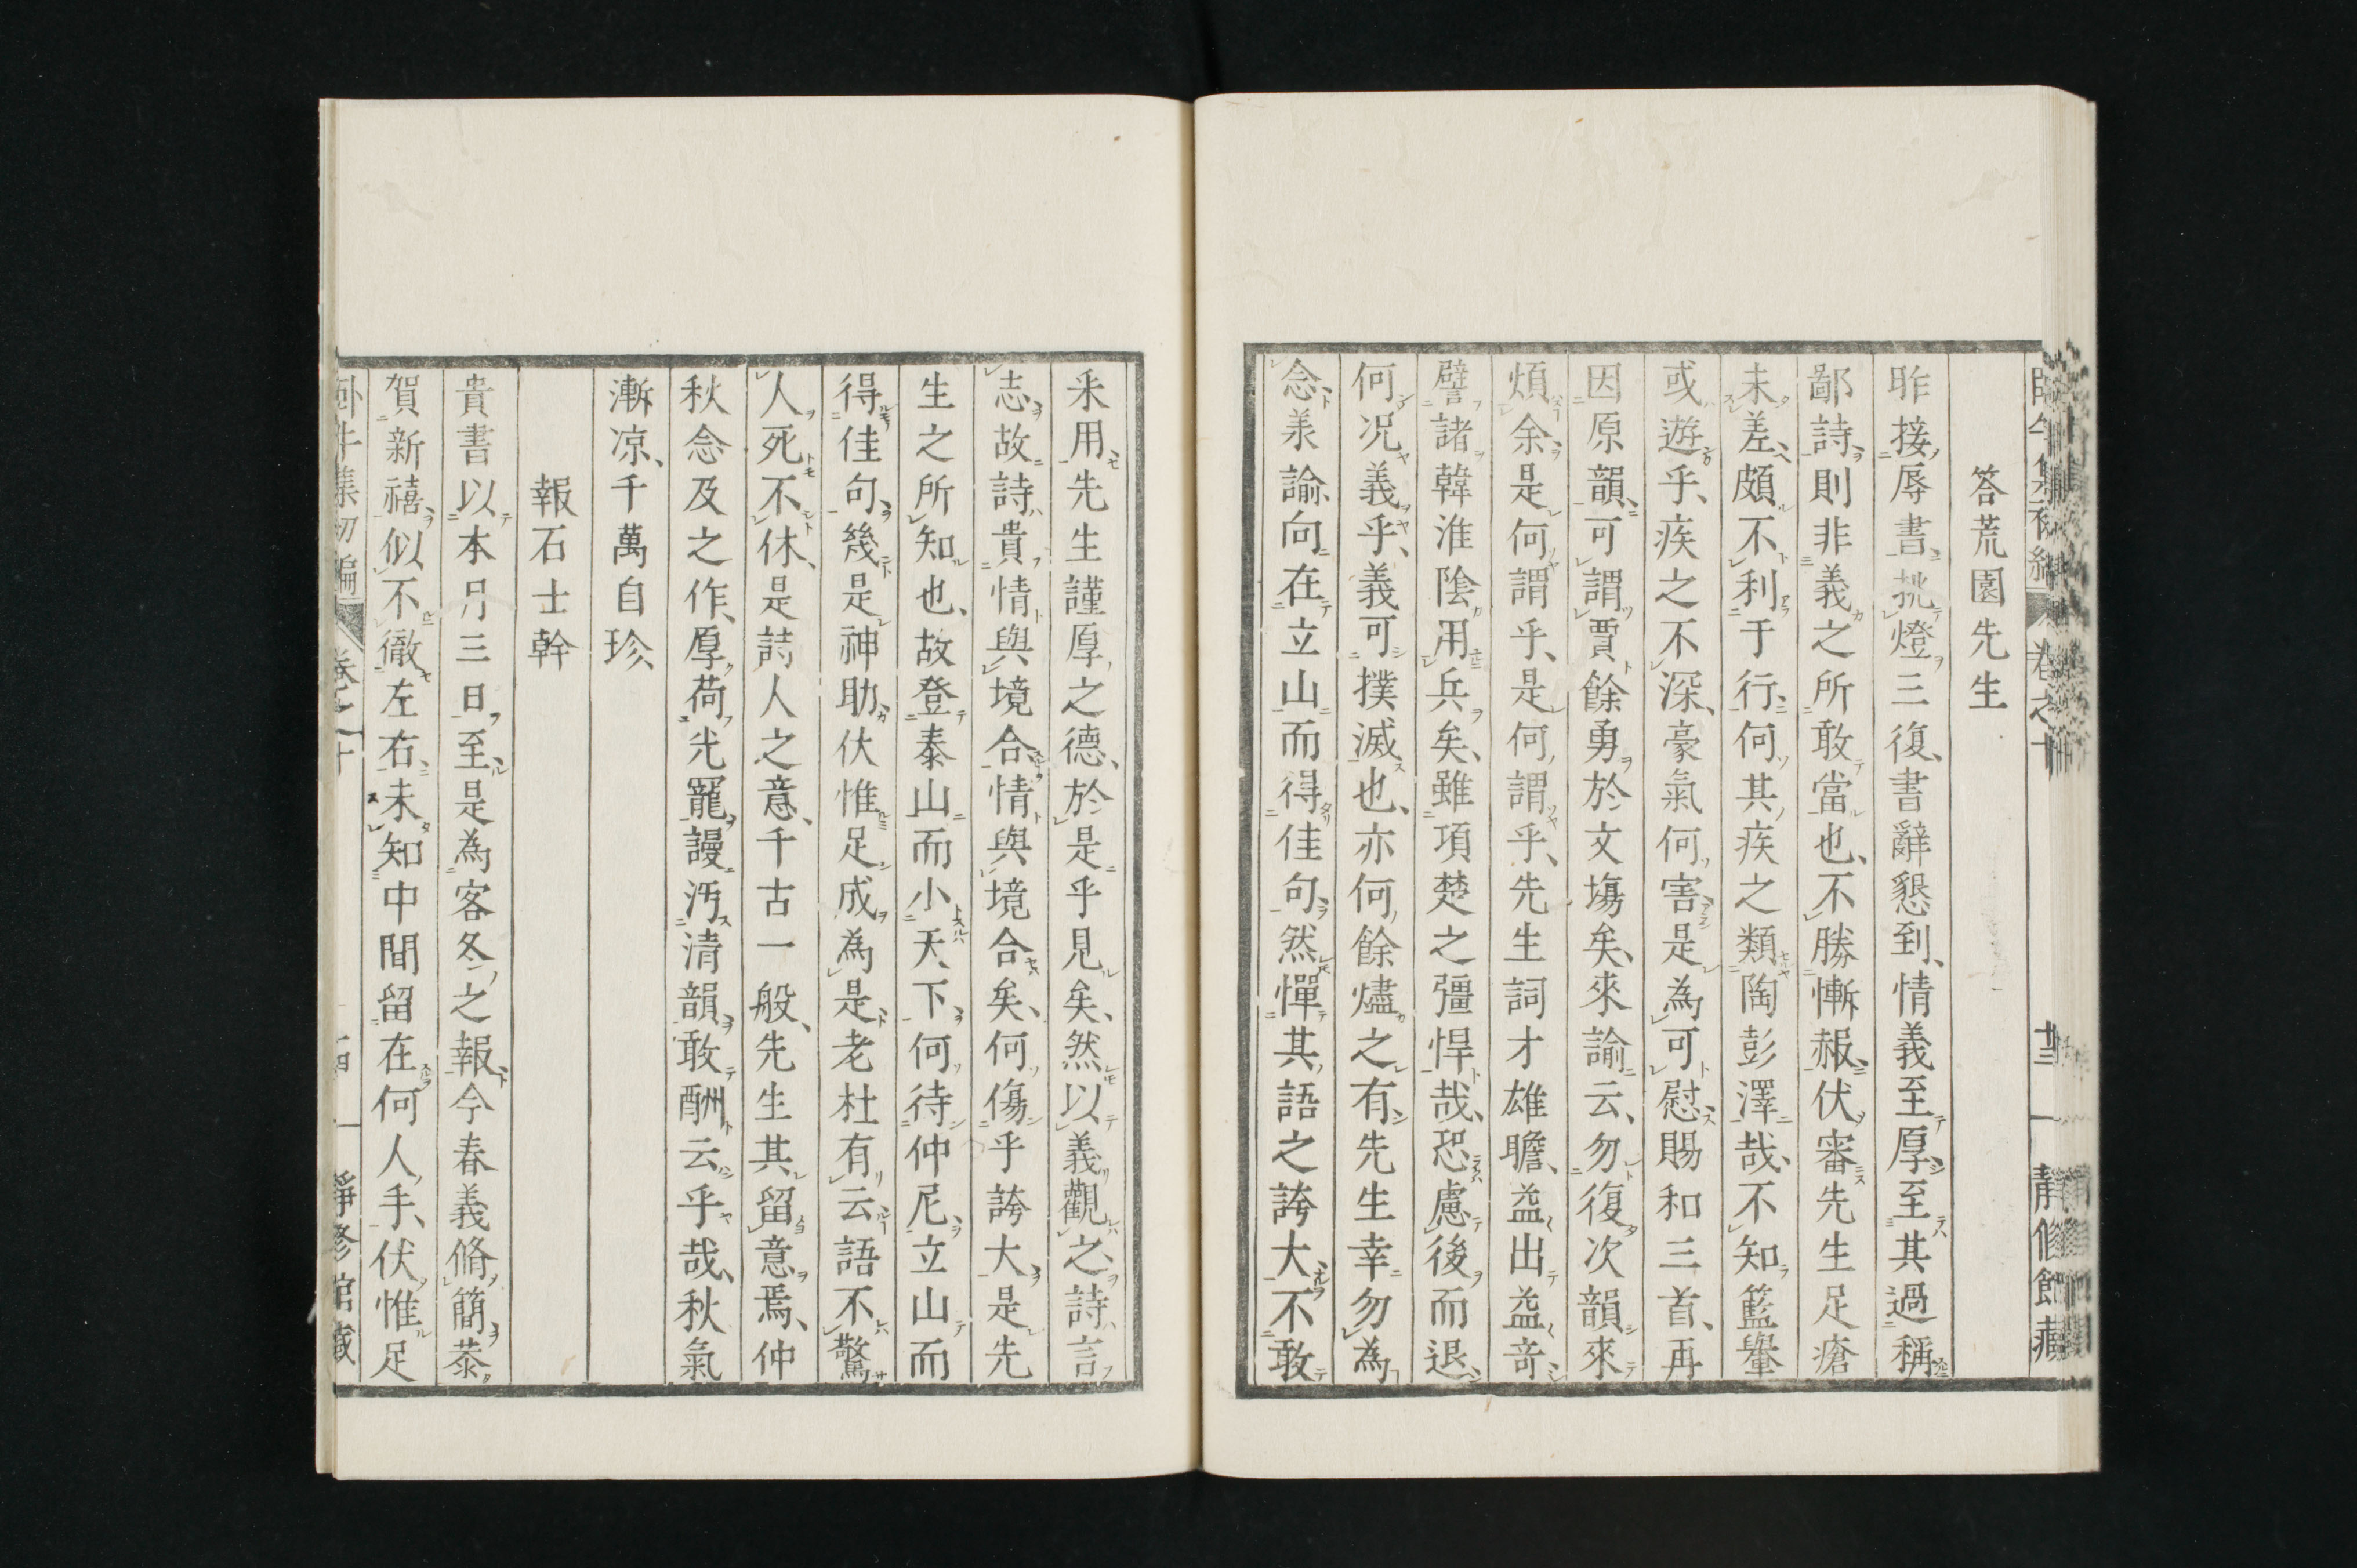 答荒園先生
昨接辱書、挑燈三復、書辭懇到、情義至厚、至其過稱
鄙詩、則非義之所敢當也、不勝慚赧、伏審先生足瘡
未差、頗不利于行、何其疾之類陶彭澤哉、不知籃轝
或遊乎、疾之不深、豪氣何害、是為可慰、賜和三首、再
因原韻、可謂賈餘勇於文塲矣、來諭云、勿復次韻來
煩余、是何謂乎、是何謂乎、先生詞才雄贍、益出益奇
譬諸韓淮陰用兵矣、雖項楚之彊悍哉、恐慮後而退
何況義乎、義可撲滅也、亦何餘燼之有、先生幸勿為
念、羕諭、向在立山而得佳句、然憚其語之誇大、不敢
釆用、先生謹厚之德、於是乎見矣、然以義觀之、詩言
志、故詩貴情與境合、情與境合矣、何傷乎誇大、是先
生之所知也、故登泰山而小天下、何待仲尼、立山而
得佳句、幾是神助、伏惟足成為是、老杜有云、語不驚
人死不休、是詩人之意、千古一般、先生其留意焉、仲
秋念及之作、厚荷光寵、謾汚清韻、敢酬云乎哉、秋氣
漸凉、千萬自珍、
報石士幹
貴書以本月三日至、是為客冬之報、今春義脩簡恭
賀新禧、似不徹左右、未知中間留在何人手、伏惟足
臥牛集初編　卷之十　十四　靜修館藏